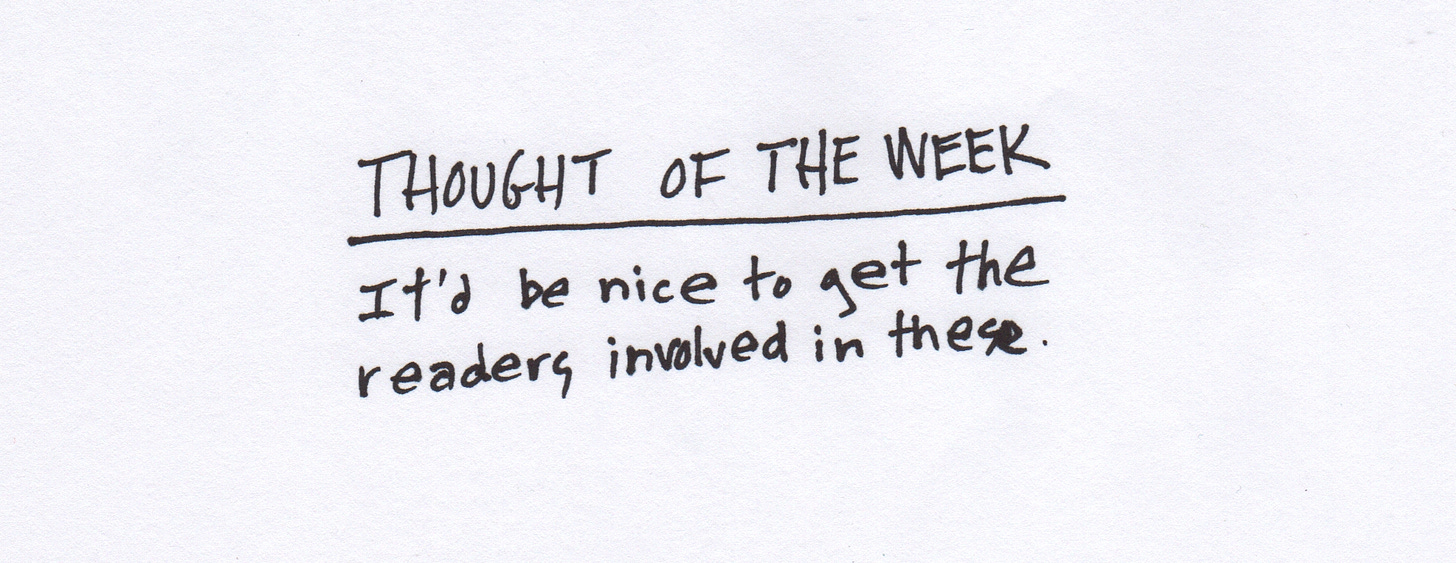 THOUGHT OF THE WEEK
It'd be nice to get the
readers involved in these.